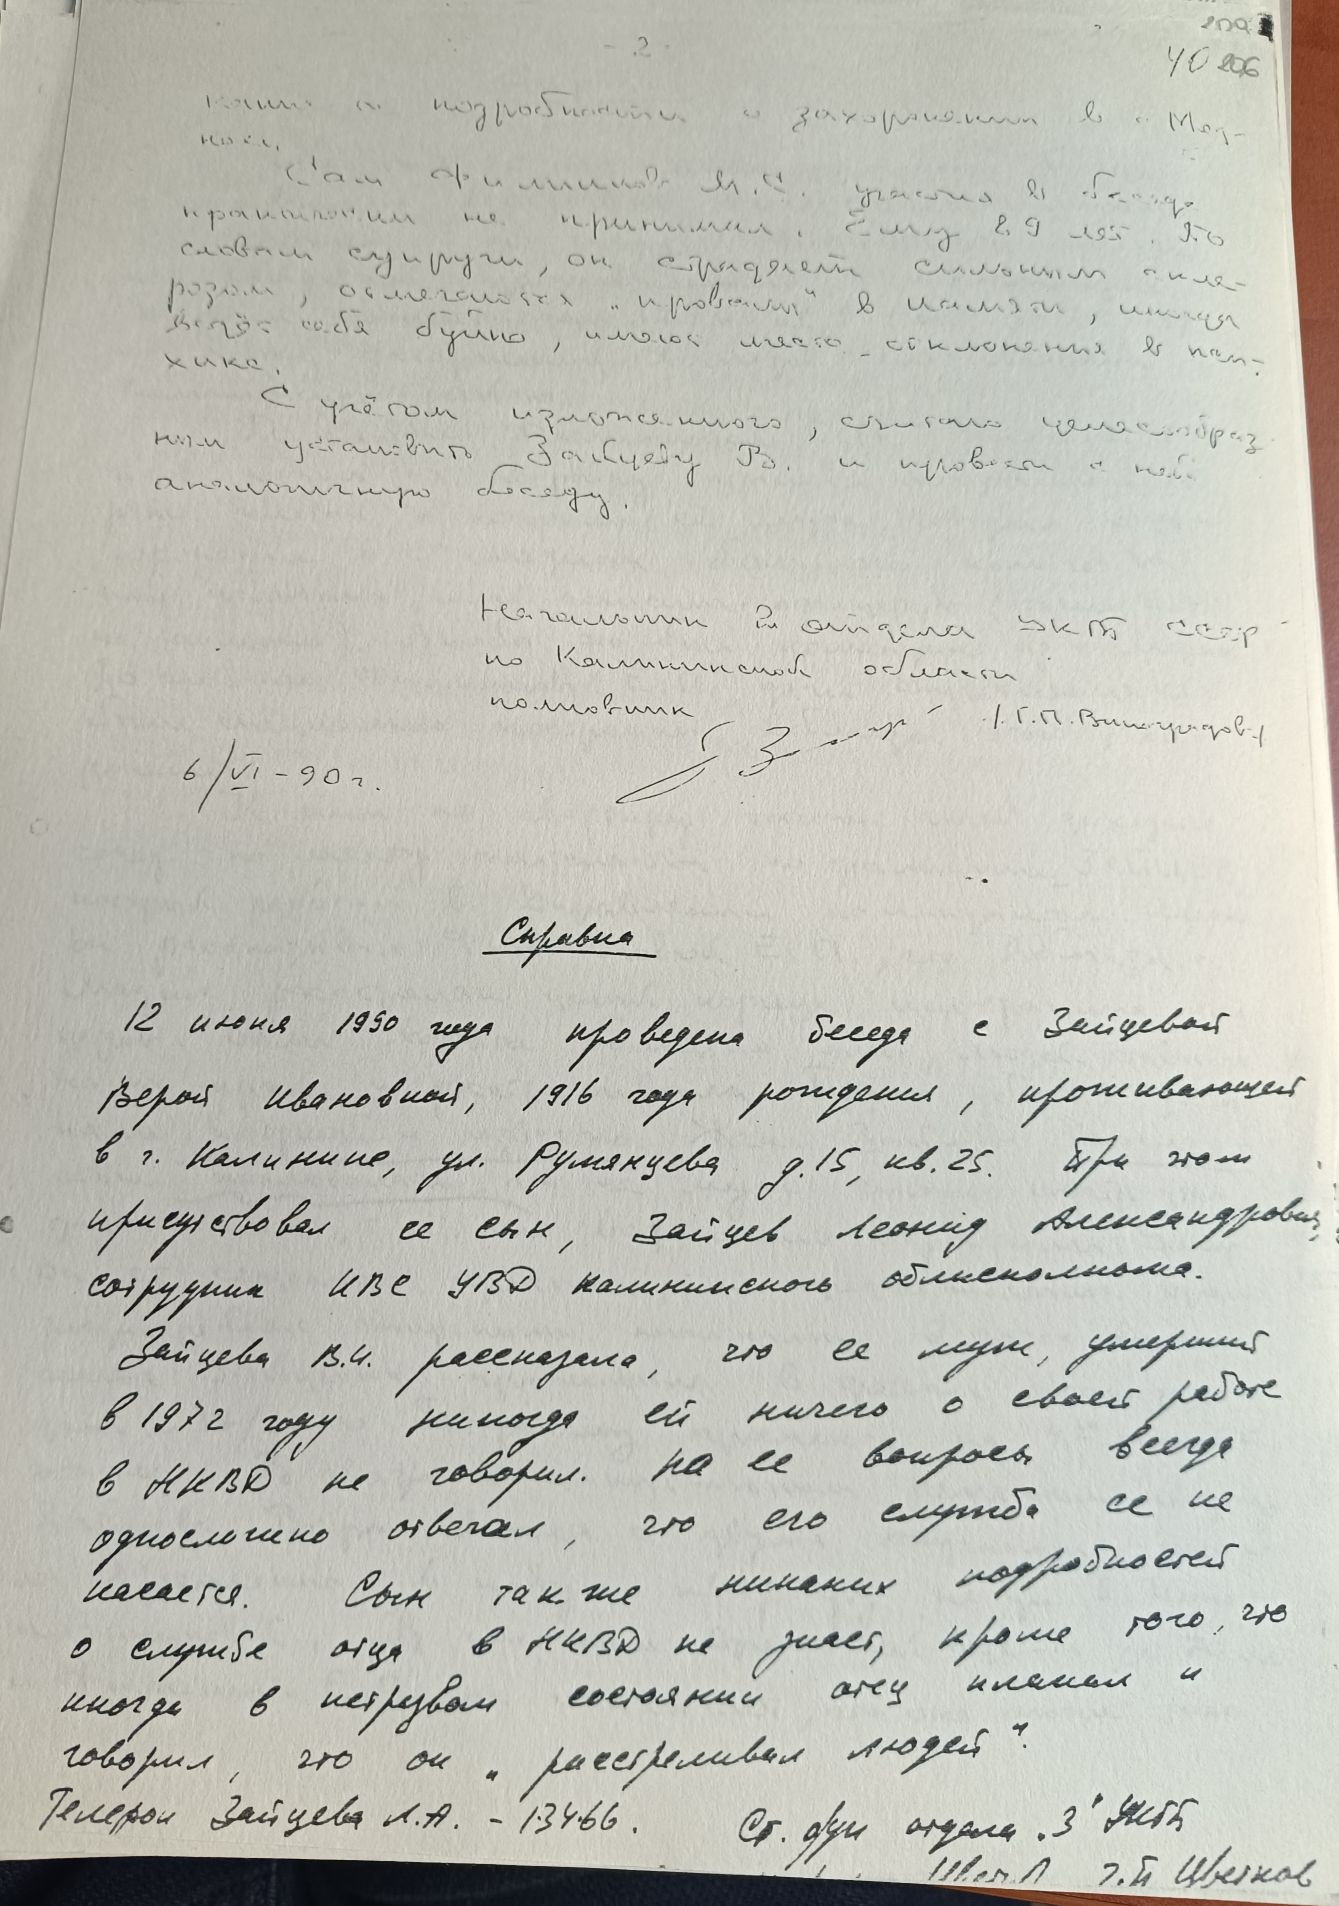 - 2 -
40 206
подробности о захоронении в с. Мед-
ном.
Сам Филиппов М.С. участия в беседе
практически не принимал. Ему 89 лет. По
словам супруги, он страдает сильным скле-
розом, отмечаются „провалы“ в памяти, иногда
ведёт себя буйно, имеют место отклонения в пси-
хике.
С учётом изложенного, считаю целесообраз-
ным установить Зайцеву В. и провести с ней
аналогичную беседу.
Начальник отдела УКГБ СССР
по Калининской области
полковник /Г.П. Виноградов/
6/VI - 90 г.
Справка
12 июня 1990 года проведена беседа с Зайцевой
Верой Ивановной, 1916 года рождения, проживающей
в г. Калинине, ул. Румянцева д. 15, кв. 25. При этом
присутствовал ее сын, Зайцев Леонид Александрович,
сотрудник ИВС УВД Калининского облисполкома.
Зайцева В.И. рассказала, что ее муж, умерший
в 1972 году никогда ей ничего о своей работе
в НКВД не говорил. На ее вопросы всегда
односложно отвечал, что его служба ее не
касается. Сын также никаких подробностей
о службе отца в НКВД не знает, кроме того, что
иногда в нетрезвом состоянии отец плакал и
говорил, что он „расстреливал людей“.
Телефон Зайцева Л.А. - 1-34-66. Ст. о/уп отдела „З“ УКГБ
Цветков